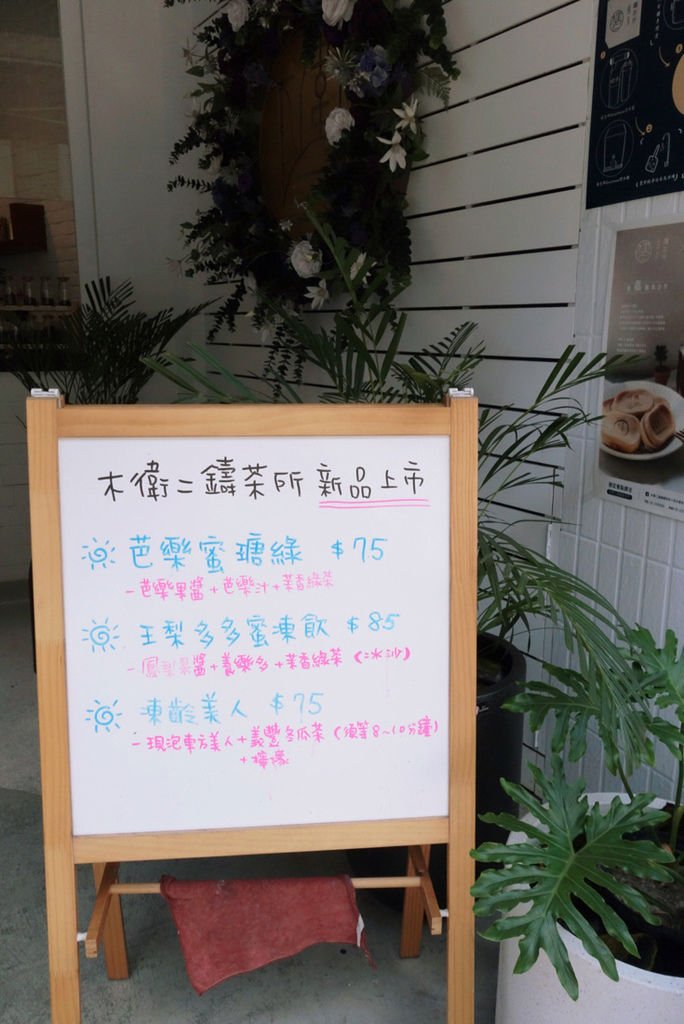 木衛二鑄茶所 新品上市
芭樂蜜瑭綠 $75
-芭樂果醬+芭樂汁+茉香綠茶
王梨多多蜜凍飲 $85
-鳳梨果醬+養樂多+茉香綠茶(冰沙)
凍齡美人 $75
-現泡東方美人+義豐冬瓜茶(須等8~10分鐘)
+檸檬